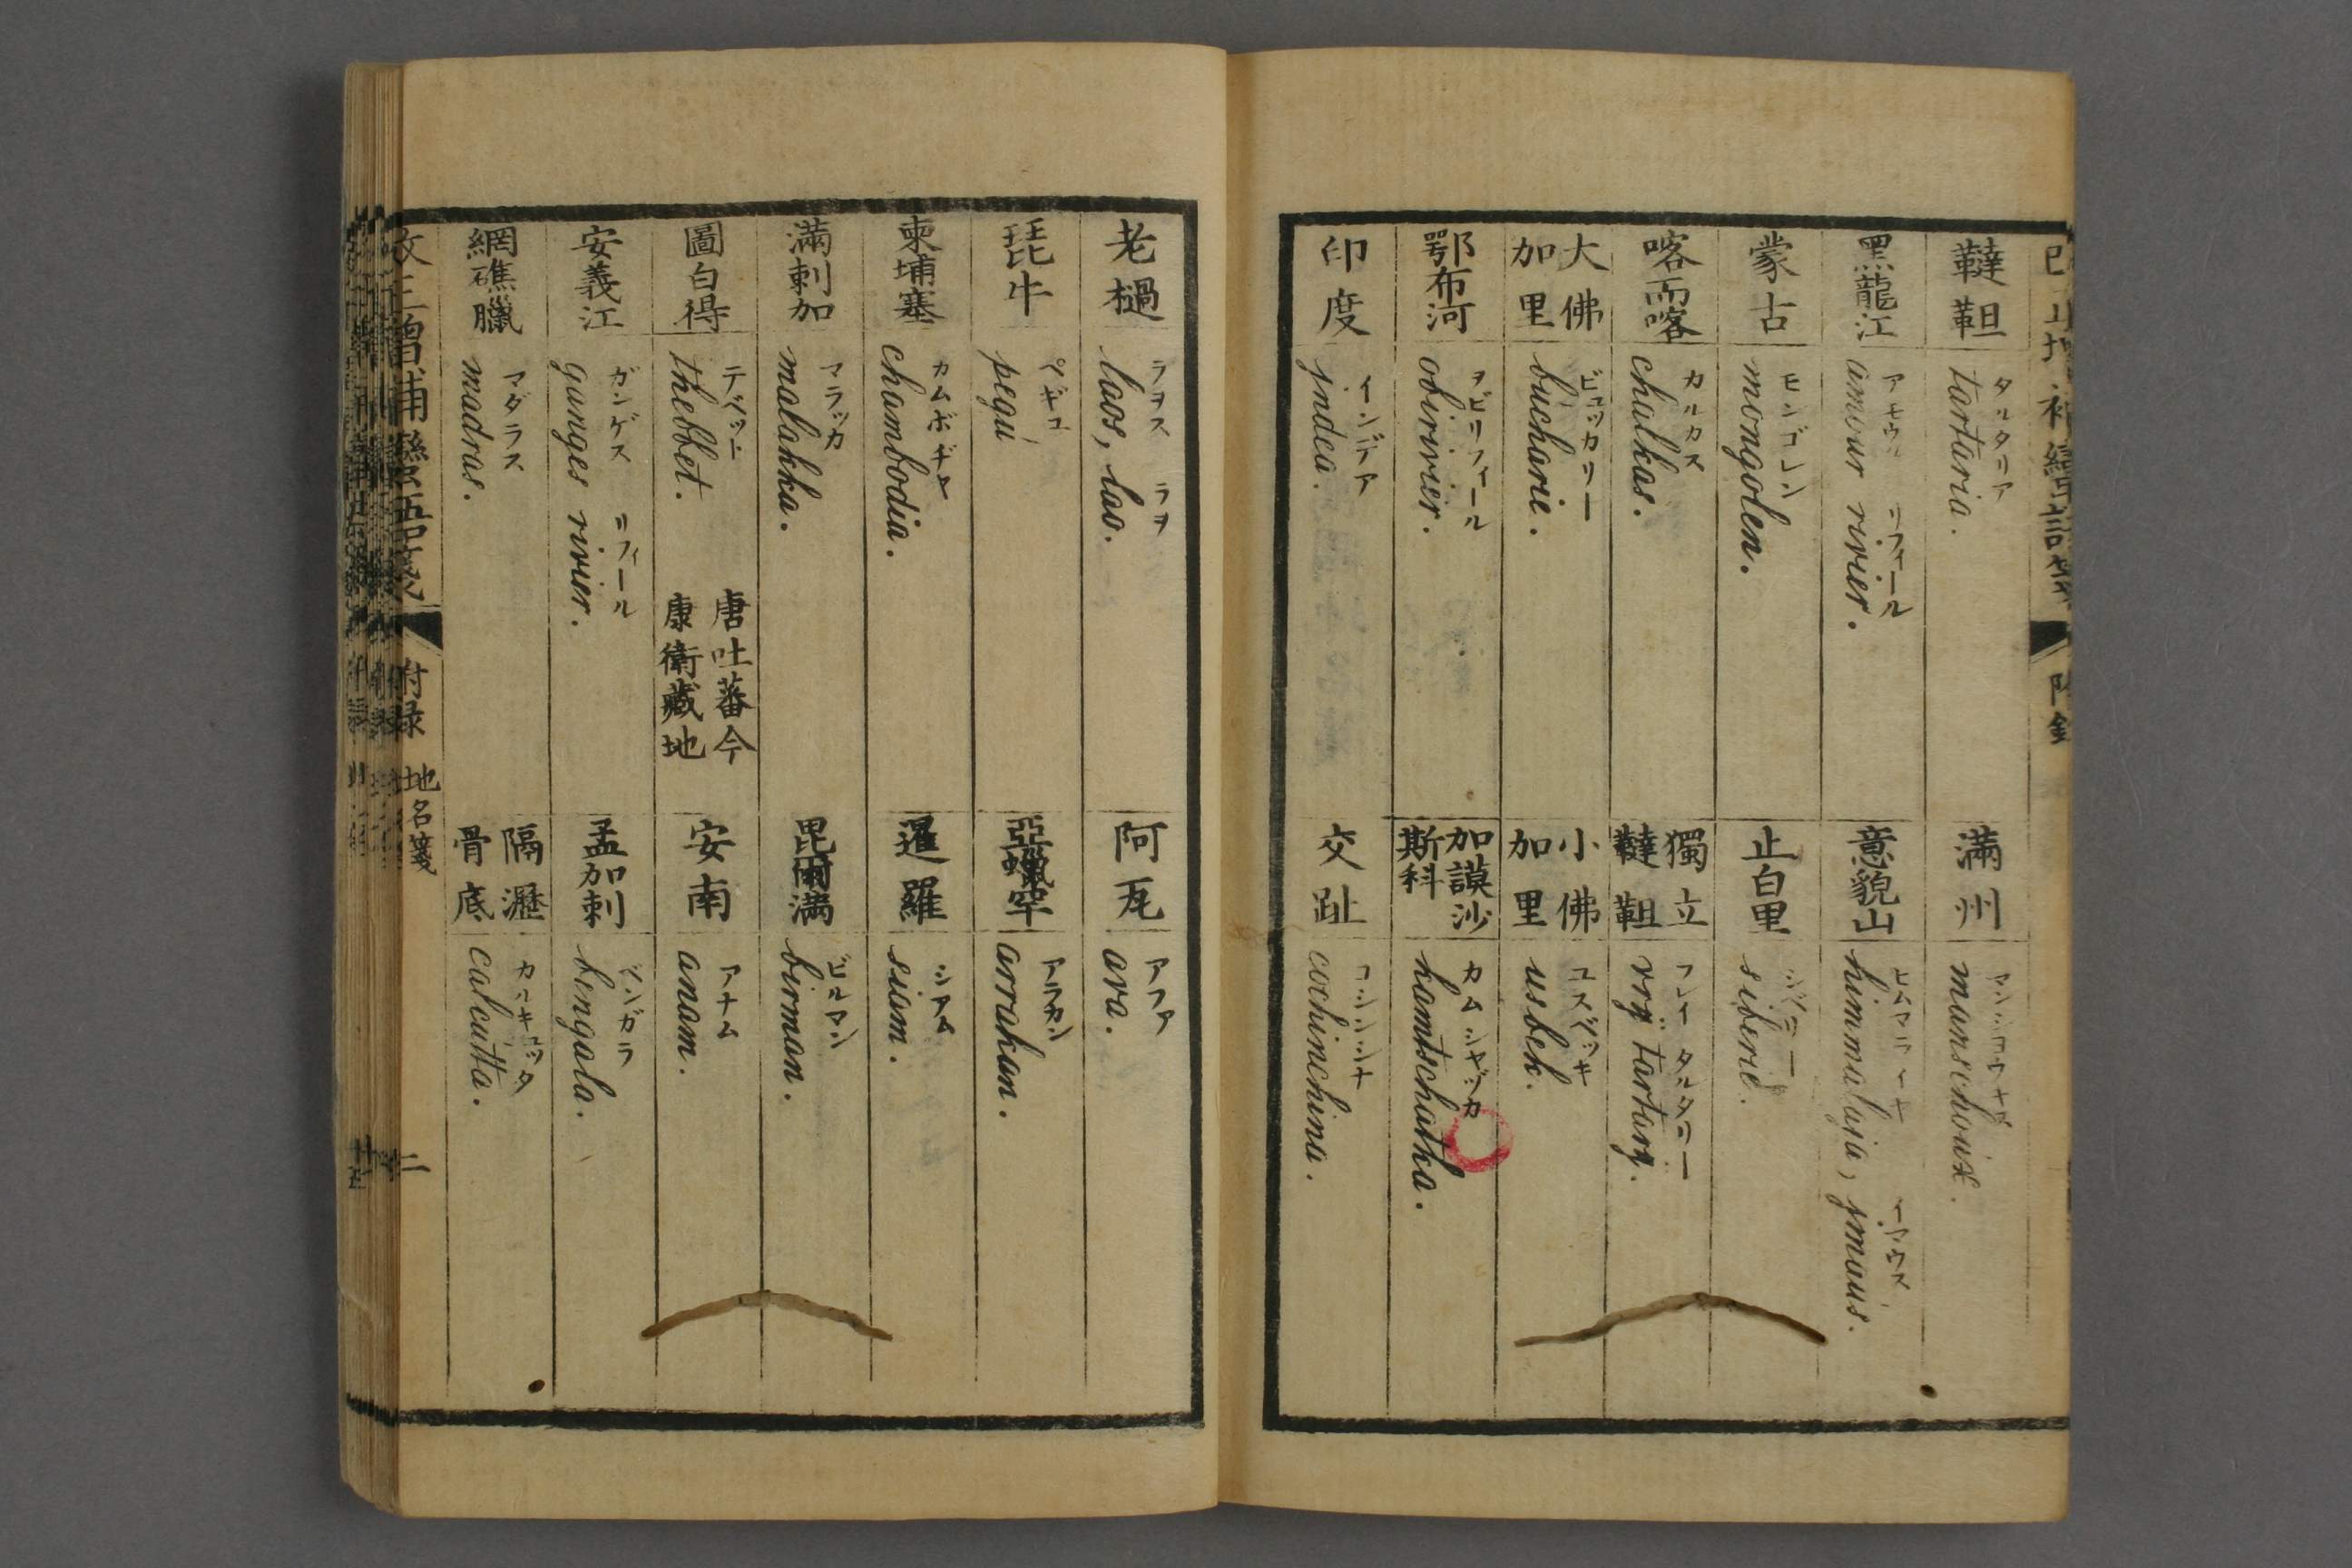 韃靼
タルタリア
tartaria.
滿州
マンシヨウキス
黑龍江
アモウル リフィール
amour rivier.
意貌山
イマウス
himmalaja, jmaus.
蒙古
モンゴレン
mongolen.
止白里
siberie.
喀而喀
カルカス
chalkas.
獨立韃靼
フレイ タルタリー
vrij tartarij.
大佛加里
ビュッカリー
bucharie.
小佛加里
ユスベッキ
usbek.
鄂布河
ヲビリフィール
obirivier.
加謨沙斯科
カムシヤツカ
kamtschatka.
印度
インデア
jndea.
交趾
コシンシナ
cochinchina.
老檛
ラヲス ラヲ
laos, lao.
阿瓦
アファ
ava.
琵牛
ペギユ
pegu
亞蠟罕
アラカン
arrakan.
柬埔塞
chambodia.
暹羅
シアム
siam.
滿剌加
マラッカ
malakka.
毘爾満
ビルマン
birman.
圖白得
テベット
thebbet.
唐吐蕃今
康衛藏地
安南
アナム
anam.
安義江
ガンゲス リフィール
gunges rivier.
孟加剌
ベンガラ
bengala.
網礁臘
マダラス
madras.
隔瀝骨底
カルキュッタ
calcutta.
改正增補蠻語箋 附録 地名箋 二